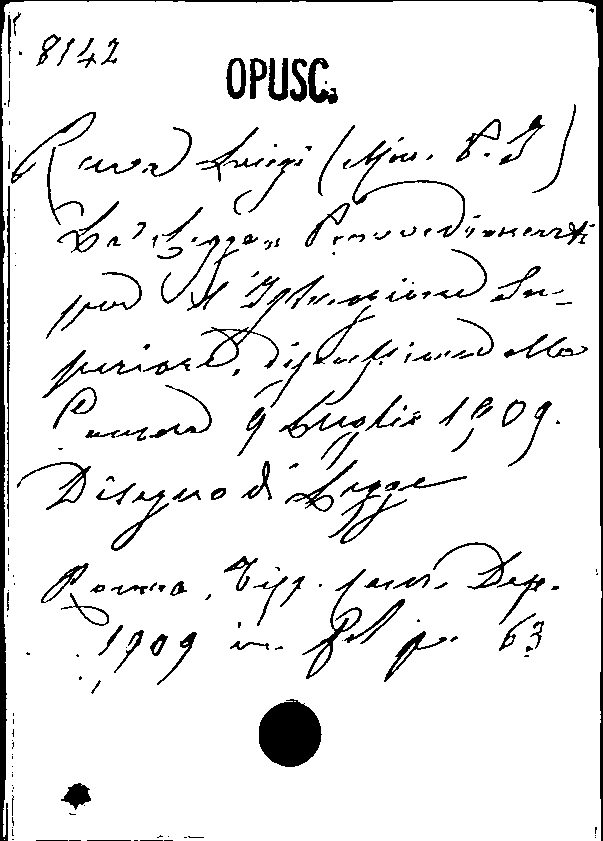 8142
OPUSC.
Rava Luigi (Min. P. I)
La Legge. Provvedimenti
per l'Istruzione Su-
periore, discussione alla
Camera 9 Luglio 1909.
Disegno di Legge
Roma, Tipp. Cam. Dep.
1909 in fol p. 63